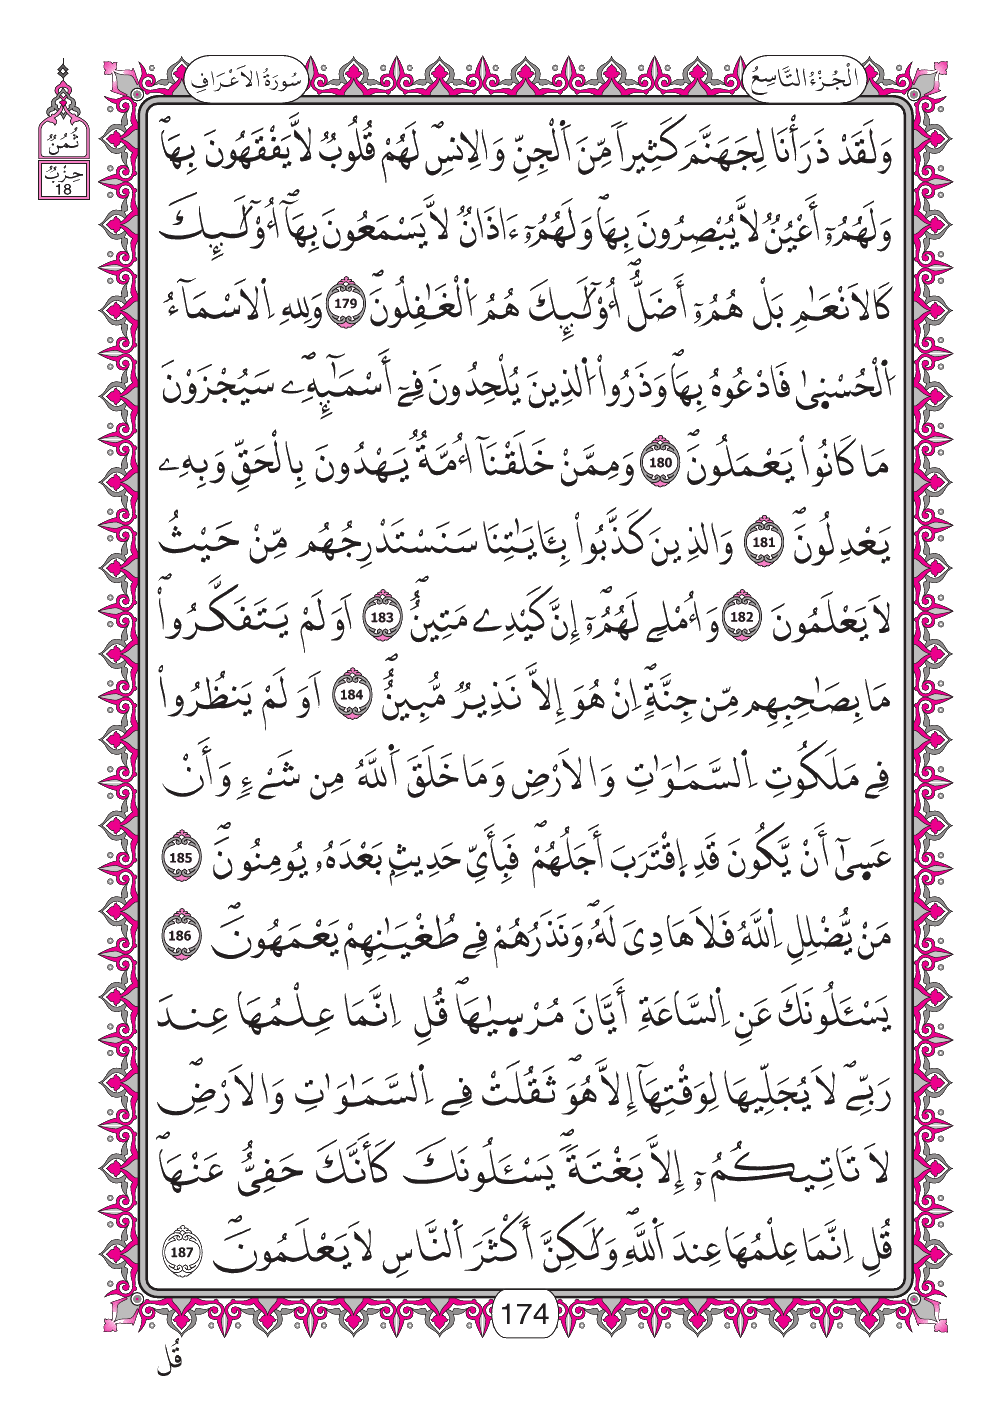 الْجُزْءُ التَّاسِعُ
سُورَةُ الْأَعْرَافِ
ثُمُنُ
حِزْبٌ
18
وَلَقَدْ ذَرَأْنَا لِجَهَنَّمَ كَثِيراً مِّنَ اَ۬لْجِنِّ وَالِانسِۖ لَهُمْ قُلُوبٞ لَّا يَفْقَهُونَ بِهَاۖ
وَلَهُمُۥٓ أَعْيُنٞ لَّا يُبْصِرُونَ بِهَاۖ وَلَهُمُۥٓ ءَاذَانٞ لَّا يَسْمَعُونَ بِهَآۖ أُوْلَٰٓئِكَ
كَالَانْعَٰمِ بَلْ هُمُۥٓ أَضَلُّۖ أُوْلَٰٓئِكَ هُمُ اُ۬لْغَٰفِلُونَۖ 179 وَلِلهِ اِ۬لَاسْمَآءُ
اُ۬لْحُسْنۭىٰ فَادْعُوهُ بِهَاۖ وَذَرُواْ اُ۬لذِينَ يُلْحِدُونَ فِےٓ أَسْمَٰٓئِهِۦۖ سَيُجْزَوْنَ
مَا كَانُواْ يَعْمَلُونَۖ 180 وَمِمَّنْ خَلَقْنَآ أُمَّةٞ يَهْدُونَ بِالْحَقِّ وَبِهِۦ
يَعْدِلُونَۖ 181 وَالذِينَ كَذَّبُواْ بِـَٔايَٰتِنَا سَنَسْتَدْرِجُهُم مِّنْ حَيْثُ
لَا يَعْلَمُونَ 182 وَأُمْلِے لَهُمُۥٓۖ إِنَّ كَيْدِے مَتِينٌۖ 183 اَوَلَمْ يَتَفَكَّرُواْۖ
مَا بِصَٰحِبِهِم مِّن جِنَّةٍۖ اِنْ هُوَ إِلَّا نَذِيرٞ مُّبِينٌۖ 184 اَوَلَمْ يَنظُرُواْ
فِے مَلَكُوتِ اِ۬لسَّمَٰوَٰتِ وَالَارْضِ وَمَا خَلَقَ اَ۬للَّهُ مِن شَےْءٖ وَأَنْ
عَسۭىٰٓ أَنْ يَّكُونَ قَدِ اِ۪قْتَرَبَ أَجَلُهُمْۖ فَبِأَيِّ حَدِيثِۢ بَعْدَهُۥ يُومِنُونَۖ 185
مَنْ يُّضْلِلِ اِ۬للَّهُ فَلَا هَادِيَ لَهُۥۖ وَنَذَرُهُمْ فِے طُغْيَٰنِهِمْ يَعْمَهُونَۖ 186
يَسْـَٔلُونَكَ عَنِ اِ۬لسَّاعَةِ أَيَّانَ مُرْسۭيٰهَاۖ قُلِ اِنَّمَا عِلْمُهَا عِندَ
رَبِّےۖ لَا يُجَلِّيهَا لِوَقْتِهَآ إِلَّا هُوَۖ ثَقُلَتْ فِے اِ۬لسَّمَٰوَٰتِ وَالَارْضِۖ
لَا تَاتِيكُمُۥٓ إِلَّا بَغْتَةٗۖ يَسْـَٔلُونَكَ كَأَنَّكَ حَفِيٌّ عَنْهَاۖ
قُلِ اِنَّمَا عِلْمُهَا عِندَ اَ۬للَّهِۖ وَلَٰكِنَّ أَكْثَرَ اَ۬لنَّاسِ لَا يَعْلَمُونَۖ 187
174
قُل